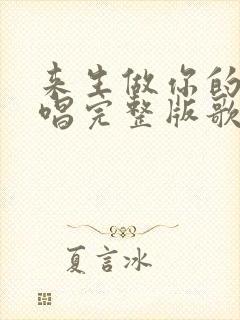 来生做你的
唱完整版歌
夏言冰